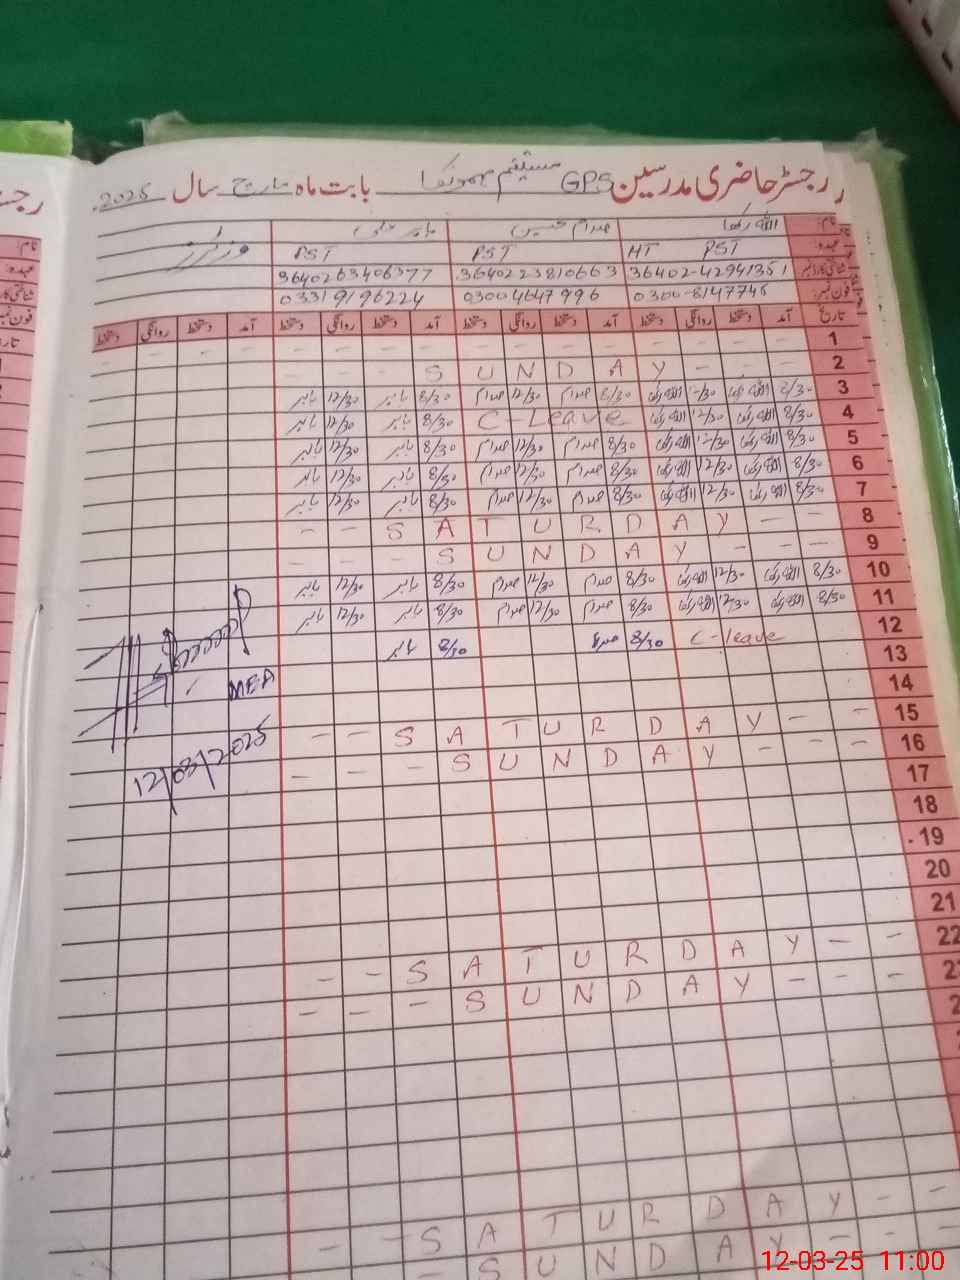 رجسٹر حاضری مدرسین GPS مستقیم جمونکا بابت ماہ مارچ سال 2025
نام: اللہ رکھا صدام حسین بابر علی
عہدہ: HT PST PST PST
شناختی کارڈ نمبر 36402-42941351 3640223810663 3640263406377
فون نمبر: 0300-8147746 03004647996 03319196224
تاریخ آمد دستخط روانگی دستخط آمد دستخط روانگی دستخط آمد دستخط روانگی دستخط آمد دستخط روانگی دستخط
1 - - - - - - - - - - -
2 - - - S U N D A Y - - -
3 8/30 اللہ رکھا 12/30 اللہ رکھا 8/30 صدام 12/30 صدام 8/30 بابر 12/30 بابر
4 8/30 اللہ رکھا 12/30 اللہ رکھا C-Leave 8/30 بابر 12/30 بابر
5 8/30 اللہ رکھا 12/30 اللہ رکھا 8/30 صدام 12/30 صدام 8/30 بابر 12/30 بابر
6 8/30 اللہ رکھا 12/30 اللہ رکھا 8/30 صدام 12/30 صدام 8/30 بابر 12/30 بابر
7 8/30 اللہ رکھا 12/30 اللہ رکھا 8/30 صدام 12/30 صدام 8/30 بابر 12/30 بابر
8 - - S A T U R D A Y - -
9 - - - S U N D A Y - - -
10 8/30 اللہ رکھا 12/30 اللہ رکھا 8/30 صدام 12/30 صدام 8/30 بابر 12/30 بابر
11 8/30 اللہ رکھا 12/30 اللہ رکھا 8/30 صدام 12/30 صدام 8/30 بابر 12/30 بابر
12 C-leave 8/30 صدام 8/30 بابر
13
MEA
14
15 - - S A T U R D A Y - -
16 - - - S U N D A Y - - -
12/03/2025
17
18
19
20
21
22 - - S A T U R D A Y - -
- - - S U N D A Y - - -
- - S A T U R D A Y - -
- - - S U N D A Y
12-03-25 11:00